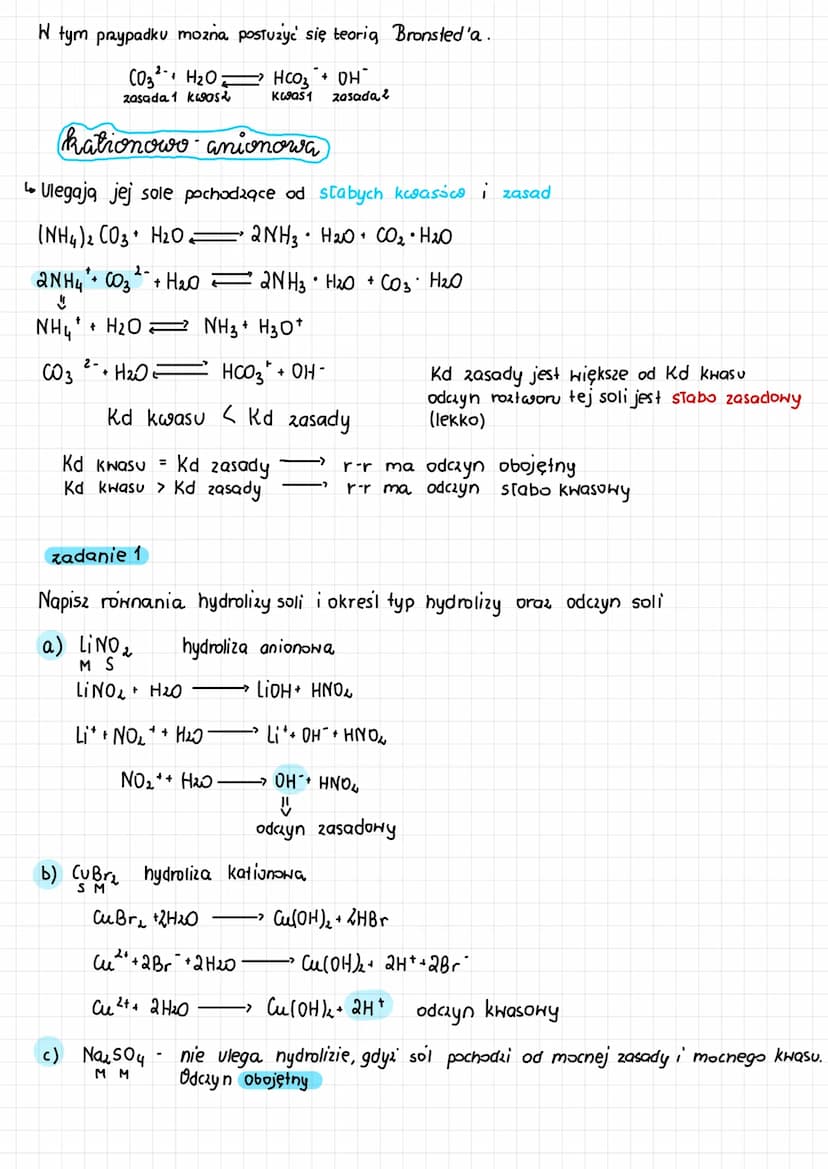 W tym przypadku można posłużyć się teorią Bronsted'a.
CO₃²⁻ + H₂O ⇌ HCO₃⁻ + OH⁻
zasada1 kwas2 kwas1 zasada2
kationowo-anionowa
↳ Ulegają jej sole pochodzące od słabych kwasów i zasad
(NH₄)₂CO₃ + H₂O ⇌ 2NH₃ · H₂O + CO₂ · H₂O
2NH₄⁺ + CO₃²⁻ + H₂O ⇌ 2NH₃ · H₂O + CO₃ · H₂O
⇓
NH₄⁺ + H₂O ⇌ NH₃ + H₃O⁺
CO₃²⁻ + H₂O ⇌ HCO₃⁺ + OH⁻
Kd kwasu < Kd zasady
Kd zasady jest większe od Kd kwasu
odczyn roztworu tej soli jest słabo zasadowy
(lekko)
Kd kwasu = Kd zasady → r-r ma odczyn obojętny
Kd kwasu > Kd zasady → r-r ma odczyn słabo kwasowy
zadanie 1
Napisz równania hydrolizy soli i określ typ hydrolizy oraz odczyn soli
a) LiNO₂ hydroliza anionowa
M S
LiNO₂ + H₂O → LiOH + HNO₂
Li⁺ + NO₂⁺ + H₂O → Li⁺ + OH⁻ + HNO₂
NO₂⁺ + H₂O → OH⁻ + HNO₂
⇓
odczyn zasadowy
b) CuBr₂ hydroliza kationowa
S M
CuBr₂ + 2H₂O → Cu(OH)₂ + 2HBr
Cu²⁺ + 2Br⁻ + 2H₂O → Cu(OH)₂ + 2H⁺ + 2Br⁻
Cu²⁺ + 2H₂O → Cu(OH)₂ + 2H⁺ odczyn kwasowy
c) Na₂SO₄ - nie ulega hydrolizie, gdyż sól pochodzi od mocnej zasady i mocnego kwasu.
M M Odczyn obojętny